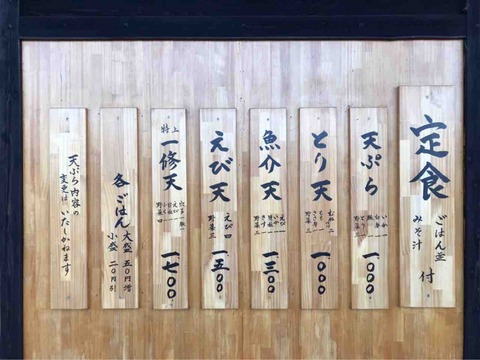 定食
ごはん並
みそ汁
付
天ぷら
一〇〇〇
とり天
一〇〇〇
魚介天
一三〇〇
えび天
えび四
野菜三
一五〇〇
特上
一修天
一七〇〇
各ごはん
大盛 五〇円増
小盛 二〇円引
天ぷら内容の
変更は、いたしかねます